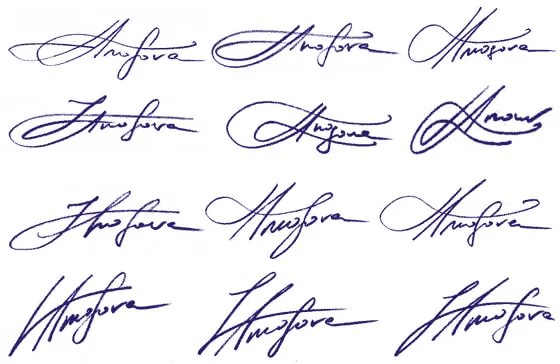 Amosova Amosova Amosova
Amosova Amosova
Amosova Amosova Amosova
Amosova Amosova Amosova